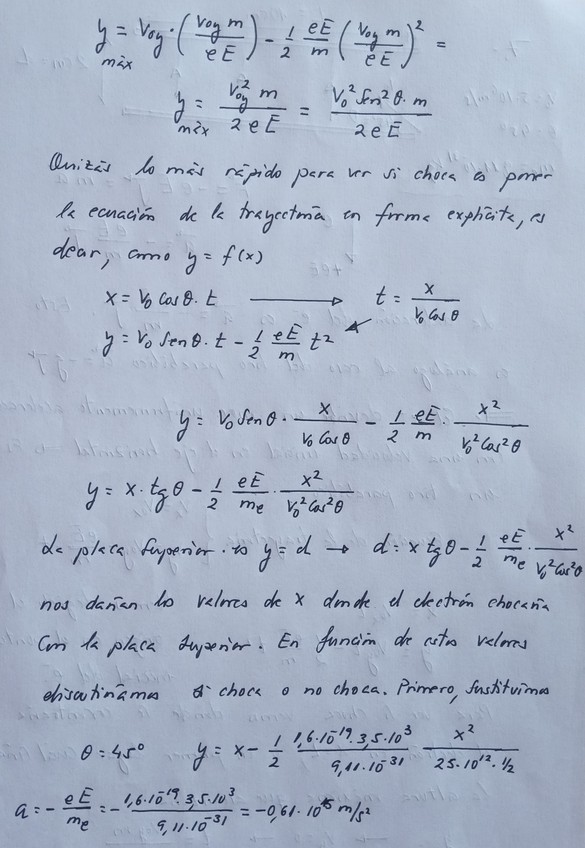 y máx = Voy·(Voy m / eE) - 1/2 eE/m (Voy m / eE)² =
y máx = Voy² m / 2eE = Vo² sen²θ·m / 2eE
Quizás lo más rápido para ver si choca es poner
la ecuación de la trayectoria en forma explícita, es
decir, como y = f(x)
x = Vo cosθ·t → t = x / Vo cosθ
y = Vo senθ·t - 1/2 eE/m t²
y = Vo senθ · x / Vo cosθ - 1/2 eE/m · x² / Vo² cos²θ
y = x·tgθ - 1/2 eE/me · x² / Vo² cos²θ
La placa superior es y = d → d = x tgθ - 1/2 eE/me · x² / Vo² cos²θ
nos darían los valores de x donde el electrón chocaría
con la placa superior. En función de estos valores
discutiríamos si choca o no choca. Primero, sustituimos
θ = 45° y = x - 1/2 1,6·10⁻¹⁹·3,5·10³ / 9,11·10⁻³¹ x² / 25·10¹²·1/2
a = - eE/me = - 1,6·10⁻¹⁹·3,5·10³ / 9,11·10⁻³¹ = -0,61·10¹⁵ m/s²